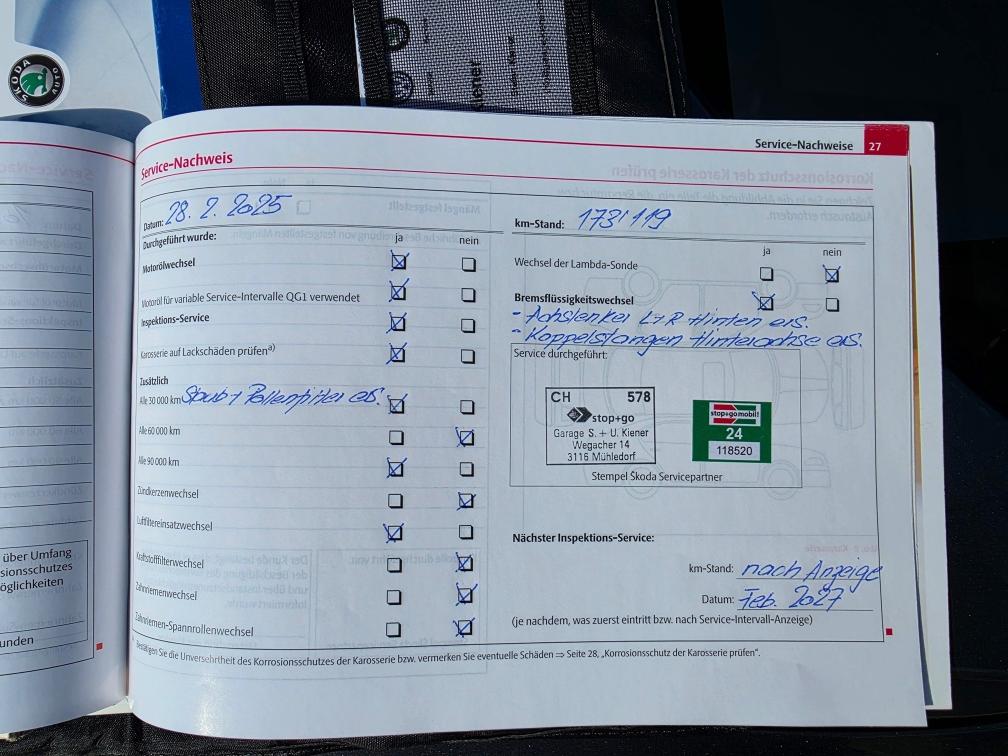 SKODA AUTO
Kiener
Service-Nachweise 27
Service-Nachweis
Datum: 28. 2. 2025
Durchgeführt wurde:
ja nein
Motorölwechsel
Motoröl für variable Service-Intervalle QG1 verwendet
Inspektions-Service
Karosserie auf Lackschäden prüfen a)
Zusätzlich
Alle 30 000 km Staub + Pollenfilter ers.
Alle 60 000 km
Alle 90 000 km
Zündkerzenwechsel
Luftfiltereinsatzwechsel
Kraftstofffilterwechsel
Zahnriemenwechsel
Zahnriemen-Spannrollenwechsel
km-Stand: 173'119
ja nein
Wechsel der Lambda-Sonde
Bremsflüssigkeitswechsel
- Achslenker L+R Hinten ers.
- Koppelstangen Hinterachse ers.
Service durchgeführt:
CH 578
stop+go
Garage S. + U. Kiener
Wegacher 14
3116 Mühledorf
stop+go mobil!
24
118520
Stempel Škoda Servicepartner
Nächster Inspektions-Service:
km-Stand: nach Anzeige
Datum: Feb. 2027
(je nachdem, was zuerst eintritt bzw. nach Service-Intervall-Anzeige)
Bestätigen Sie die Unversehrtheit des Korrosionsschutzes der Karosserie bzw. vermerken Sie eventuelle Schäden ⇒ Seite 28, „Korrosionsschutz der Karosserie prüfen“.
über Umfang
sionsschutzes
öglichkeiten
unden